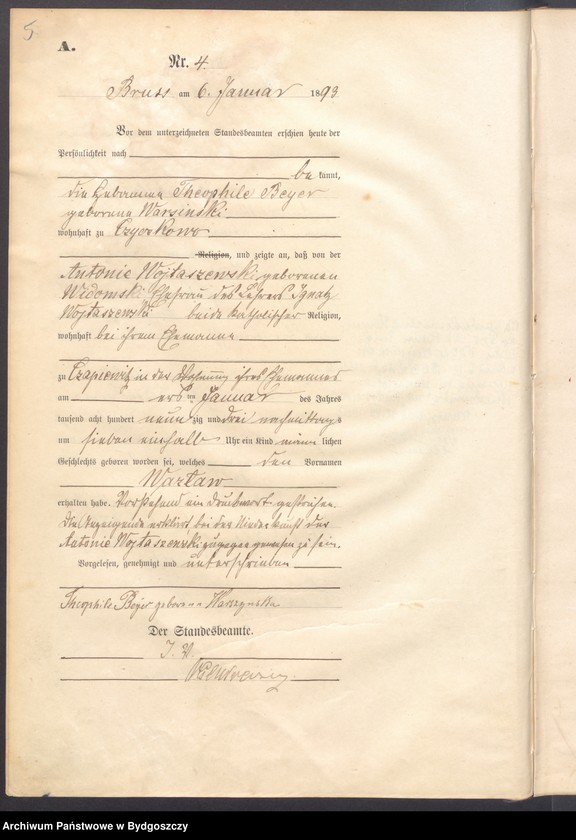 5
A.
Nr. 4.
Bruss am 6. Januar 1893
Vor dem unterzeichneten Standesbeamten erschien heute der
Persönlichkeit nach
be kannt,
die Hebamme Theophile Beyer
geborene Warsinski
wohnhaft zu Czyczkowo
Religion, und zeigte an, daß von der
Antonie Wojtaszewski geborenen
Widomski Ehefrau des Lehrers Ignatz
Wojtaszewski beide katholischer Religion,
wohnhaft bei ihrem Ehemanne
zu Czapiewitz in der Wohnung ihres Ehemannes
am ersten Januar des Jahres
tausend acht hundert neun zig und drei nachmittags
um sieben einhalb Uhr ein Kind männ lichen
Geschlechts geboren worden sei, welches den Vornamen
Wazław
erhalten habe. Vorstehend ein Druckwort gestrichen.
Die Anzeigende erklärt bei der Niederkunft der
Antonie Wojtaszewski zugegen gewesen zu sein.
Vorgelesen, genehmigt und unterschrieben
Theophile Beyer geborene Warszynska
Der Standesbeamte.
I. V.
Archiwum Państwowe w Bydgoszczy